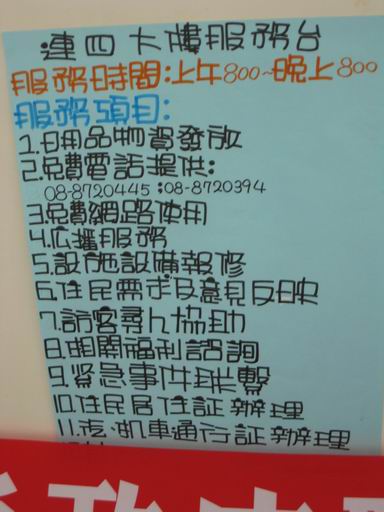 連四大樓服務台
服務時間:上午800~晚上800
服務項目:
1.日用品物資發放
2.免費電話提供:
08-8720445:08-8720394
3.免費網路使用
4.広播服務
5.設施設備報修
6.住民需求及意見反映
7.訪客尋人協助
8.相關福利諮詢
9.緊急事件聯繫
10.住民居住証辦理
11.汽.机車通行証辦理